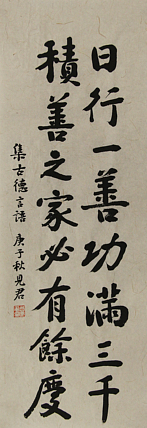 日行一善功滿三千
積善之家必有餘慶
集古德言語 庚子秋見君